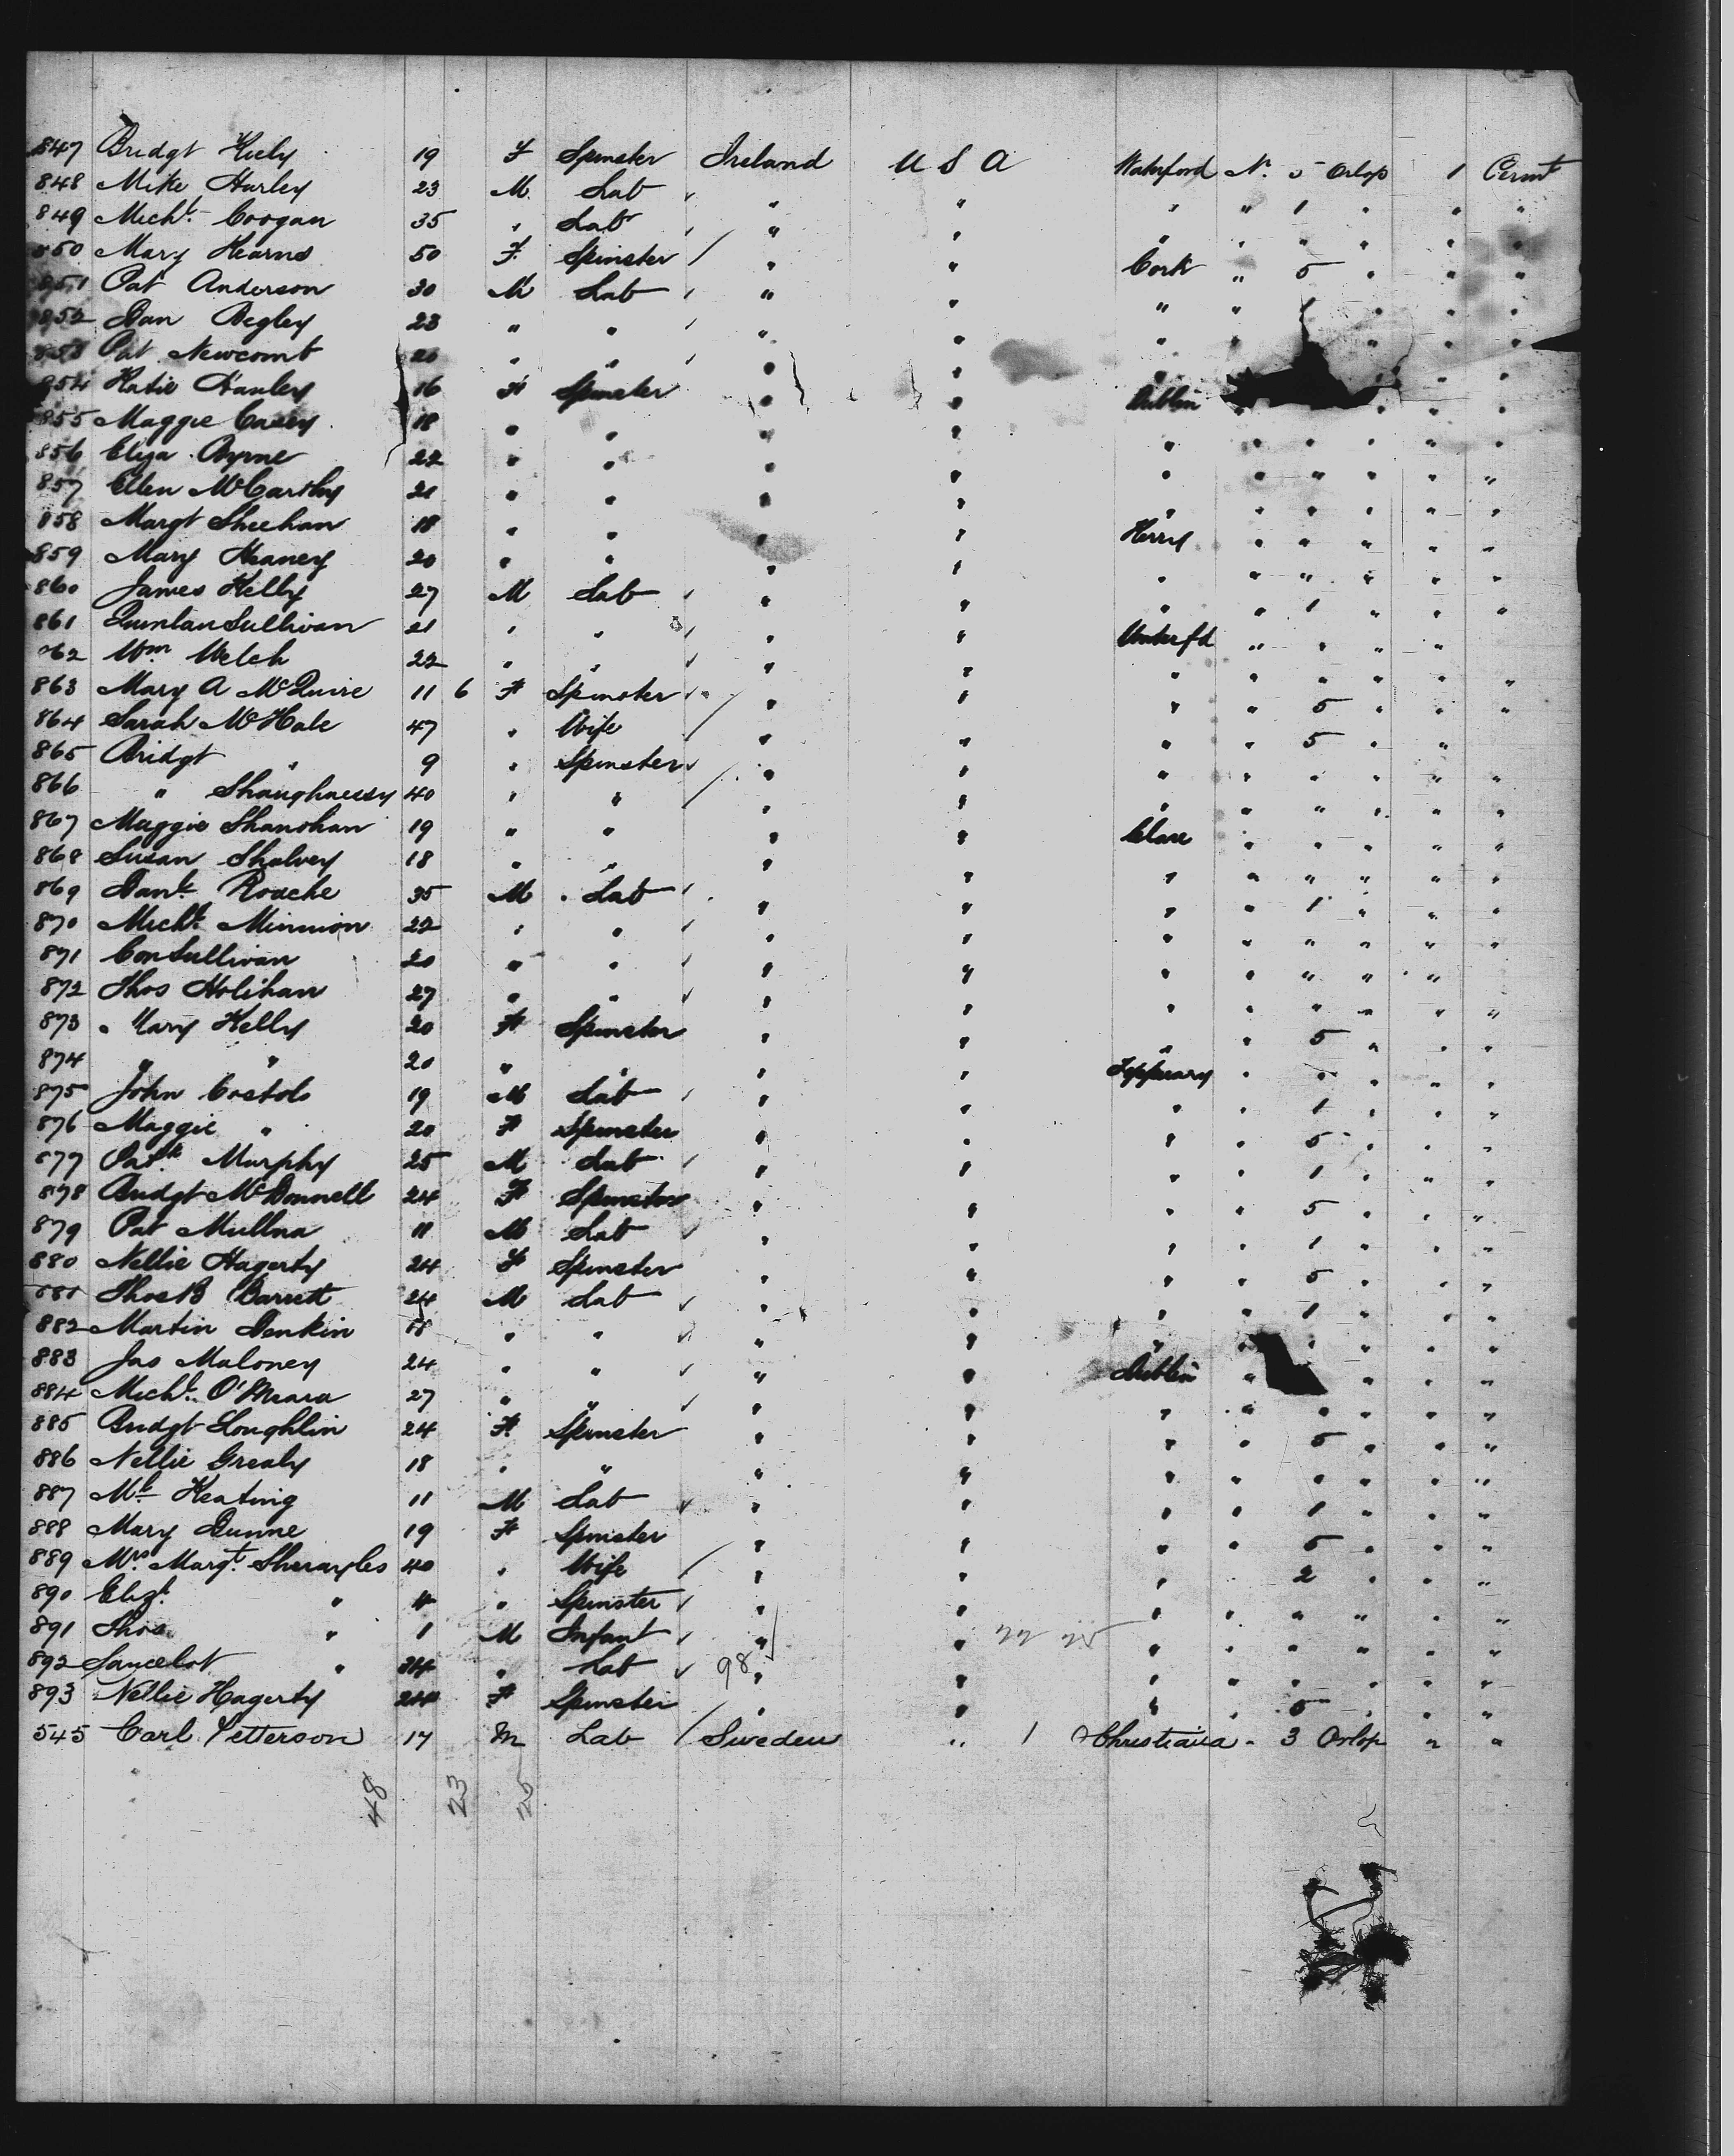 847 Bridgt Kiely 19 F Spinster Ireland U S A Waterford Nr. 5 Orlop 1 Permt
848 Mike Hurley 23 M. Lab " " " " 1 " " "
849 Michl. Coogan 35 " Lab " " " " " " " "
850 Mary Kearns 50 F. Spinster " " Cork " 5 " " "
851 Pat Anderson 30 M Lab " " " " 1 " " "
852 Dan Begley 23 " " " " " " "
853 Pat Newcomb 20 " " " " " " " "
854 Katie Hanley 16 F Spinster " " Dublin " " " "
855 Maggie Casey 18 " " " " " " " " " "
856 Eliza Byrne 22 " " " " " " " " " "
857 Ellen McCarthy 21 " " " " " " " " " "
858 Margt Sheehan 18 " " " " Kerry " " " " "
859 Mary Heaney 20 " " " " " " " " " "
860 James Kelly 27 M Lab " " " " 1 " " "
861 Quinlan Sullivan 21 " " " " Waterfd " " " "
862 Wm Welch 22 " " " " " " " " " "
863 Mary A McQuire 11 6 F Spinster " " " " 5 " " "
864 Sarah McHale 47 " Wife " " " " 5 " "
865 Bridgt " 9 " Spinster " " " " " " " "
866 " Shaughnessy 40 " " " " " " " " "
867 Maggie Shanohan 19 " " " " Clare " " " " "
868 Susan Shalvey 18 " " " " " " " " " "
869 Danl. Roache 35 M Lab " " " " 1 " " "
870 Michl. Minnion 22 " " " " " " " " " "
871 Con Sullivan 20 " " " " " " " " "
872 Thos Holihan 27 " " " " " " " " " "
873 Mary Kelly 20 F Spinster " " " " 5 " " "
874 " " 20 " " " " Tipperary " " " " "
875 John Costolo 19 M Lab " " " " 1 " " "
876 Maggie " 20 F Spinster " " " " 5 " " "
877 Patk Murphy 25 M Lab " " " " 1 " " "
878 Bridgt McDonnell 24 F Spinster " " " " 5 " " "
879 Pat Mullna 11 M Lab " " " " 1 " " "
880 Nellie Hagerty 24 F Spinster " " " " 5 " " "
881 Thos B Barrett 24 M Lab " " " " 1 " " "
882 Martin Denkin 18 " " " " " " " " " "
883 Jas Maloney 24 " " " " Dublin " " " "
884 Michl. O'Meara 27 " " " " " " " " " "
885 Bridgt Loughlin 24 F Spinster " " " " 5 " " "
886 Nellie Grealy 18 " " " " " " " " " "
887 Mk Keating 11 M Lab " " " " 1 " " "
888 Mary Dunne 19 F Spinster " " " " 5 " " "
889 Mrs. Margt. 40 " Wife " " " 2 " " "
890 Elizt. " " Spinster " " " " " " " "
891 Thos " 1 M Infant " " " " " " " "
892 Lancelot " 34 " Lab 98 " " " " " " " "
893 Nellie Hagerty 24 F Spinster " " " " 5 " " "
545 Carl Petterson 17 M Lab Sweden " 1 Christiania " 3 Orlop " "
48 23 25